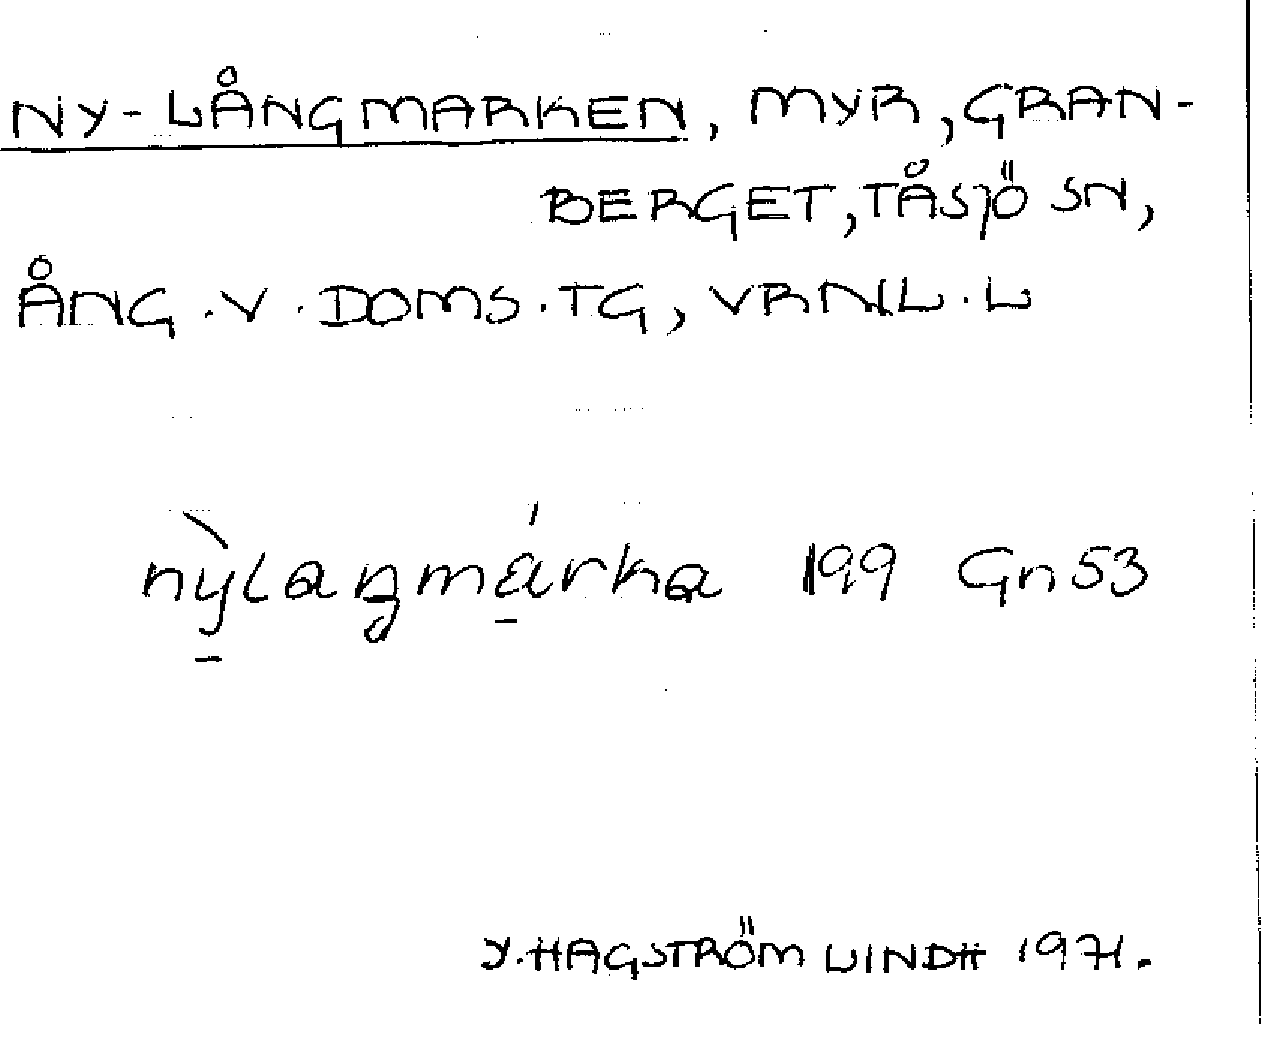 NY-LÅNGMARKEN, MYR, GRAN-
BERGET, TÅSJÖ SN,
ÅNG.V.DOMS.TG, VRNL.L
nỳlaŋmárka 199 Gn53
Y.HAGSTRÖM LINDH 1971.